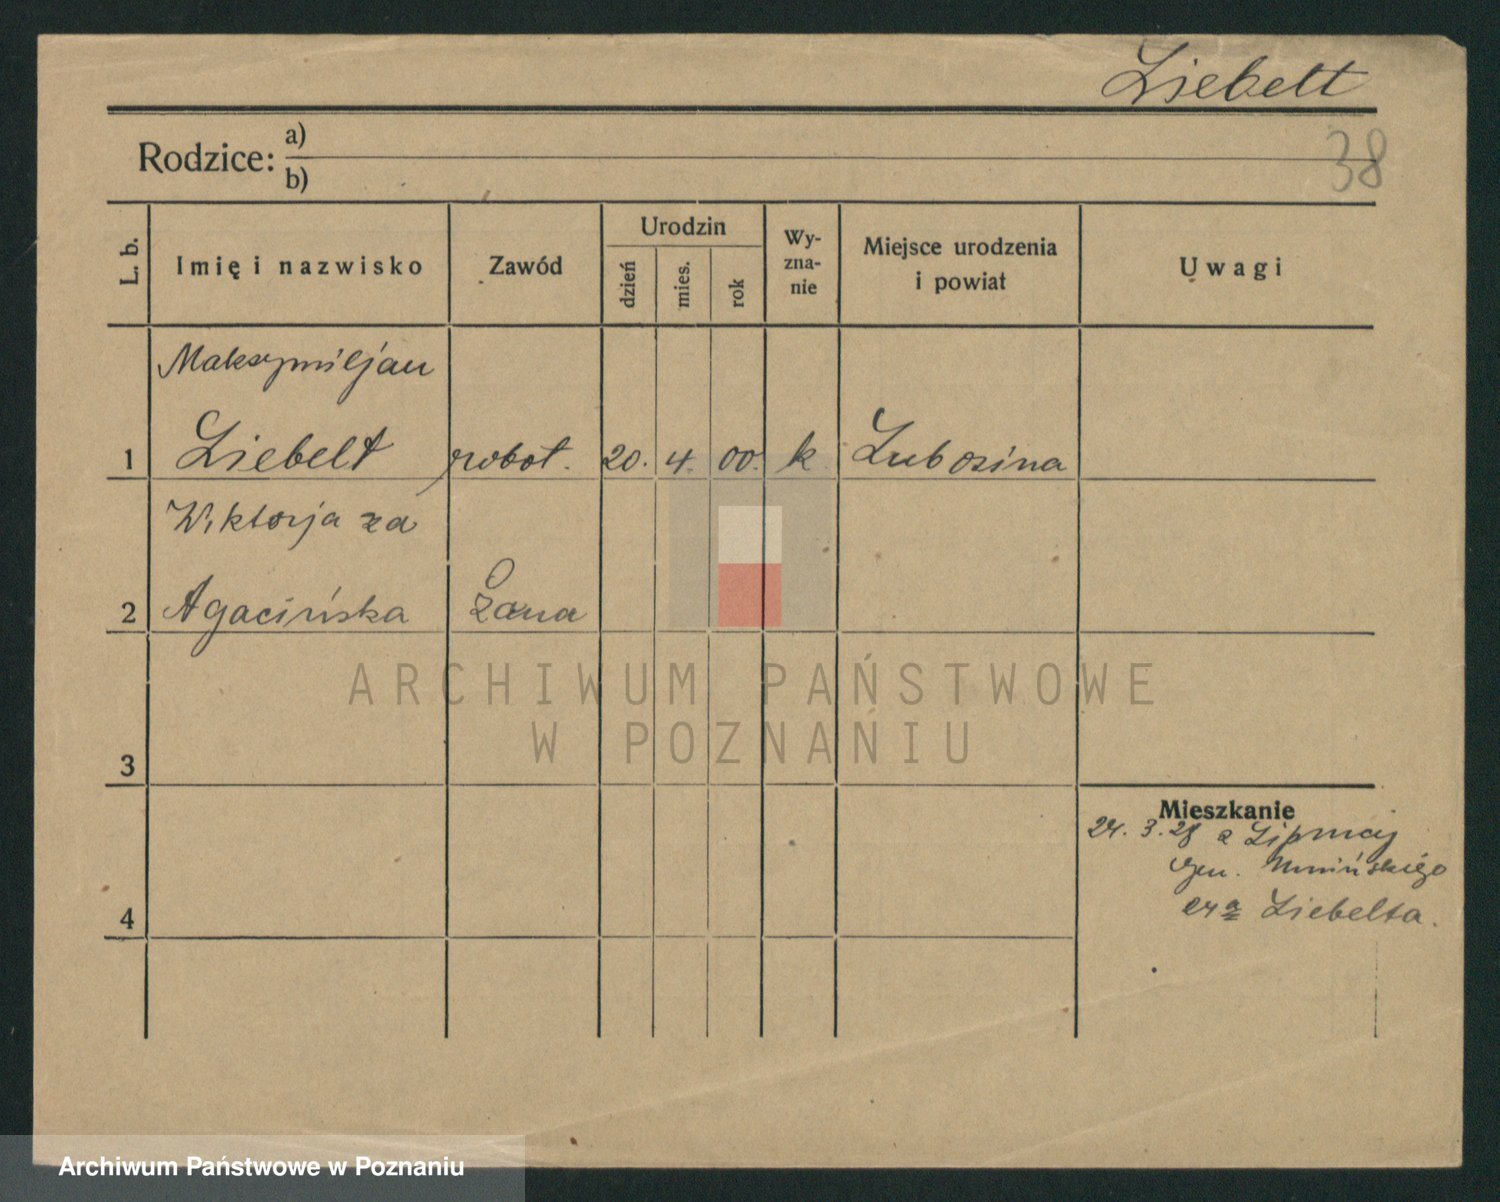 Liebelt
38
Rodzice: a)
b)
L. b.
Imię i nazwisko
Zawód
Urodzin
dzień
mies.
rok
Wy-
zna-
nie
Miejsce urodzenia
i powiat
Uwagi
Maksymiljan
1 Liebelt robot. 20. 4. 00. k Lubosina
Wiktorja za
2 Agacińska żona
ARCHIWUM PAŃSTWOWE
W POZNANIU
3
Mieszkanie
24. 3. 28 z Lipnicy
gen. Umińskiego
Liebelta.
4
Archiwum Państwowe w Poznaniu